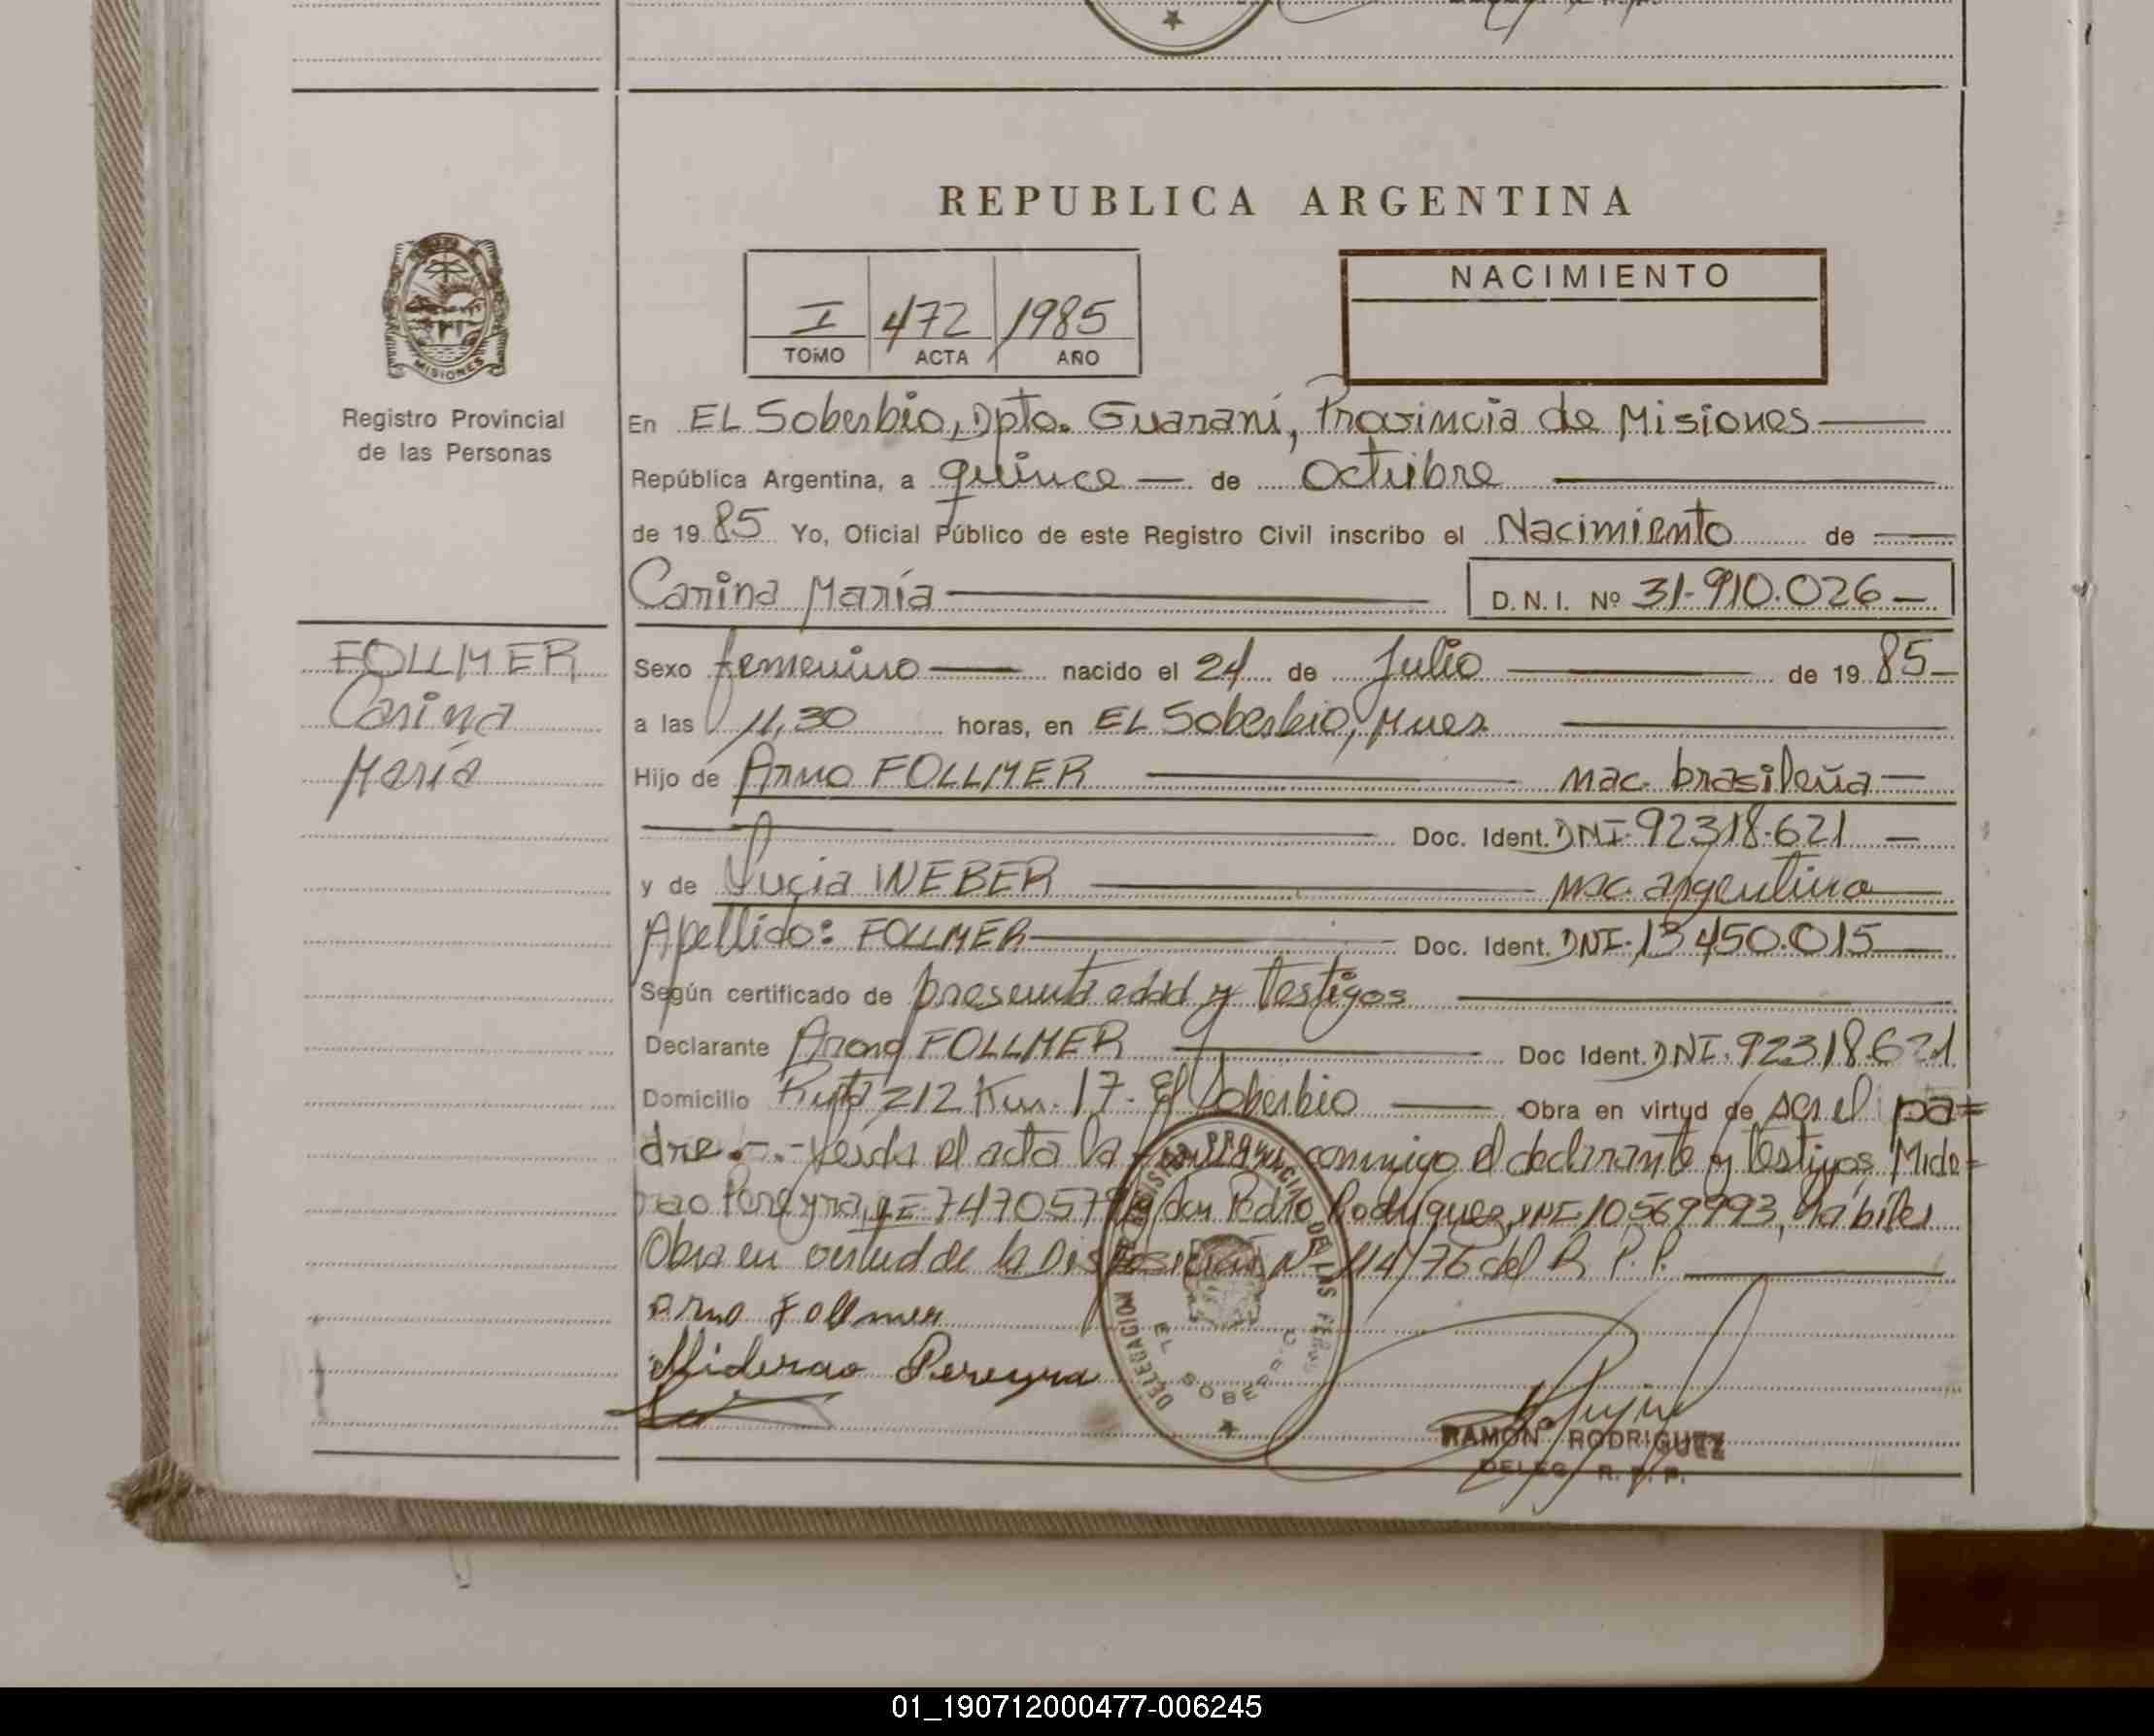 REPUBLICA ARGENTINA
MISIONES
Registro Provincial
de las Personas
I 472 1985
TOMO ACTA AÑO
NACIMIENTO
En EL Soberbio, Dpto. Guaraní, Provincia de Misiones
República Argentina, a quince de Octubre
de 1985 Yo, Oficial Público de este Registro Civil inscribo el Nacimiento de
Carina María D.N.I. Nº 31.910.026
FOLLMER
Carina
María
Sexo femenino nacido el 24 de Julio de 1985
a las 11,30 horas, en EL Soberbio, Mnes
Hijo de Arno FOLLMER nac. brasileña
Doc. Ident. DNI. 92318.621
y de Lucia WEBER nac. argentina
Apellido: FOLLMER Doc. Ident. DNI. 13.450.015
Según certificado de presunta edad y Testigos
Declarante FOLLMER Doc Ident. DNI. 92318.621
Domicilio Ruta 212 Km. 17. El Soberbio Obra en virtud de ser el pa=
dre. Leida el acta la conmigo el declarante y testigos Mide=
rao Pereyra, don Pedro Rodriguez, DNI 10569993, Hábiles
Obra en virtud de la Disposición Nº 114/76 del R. P. P.
Arno Follmer
Miderao Pereyra
DELEGACION EL SOBERBIO
RAMON RODRIGUEZ
DELEG. R. P. P.
01_190712000477-006245